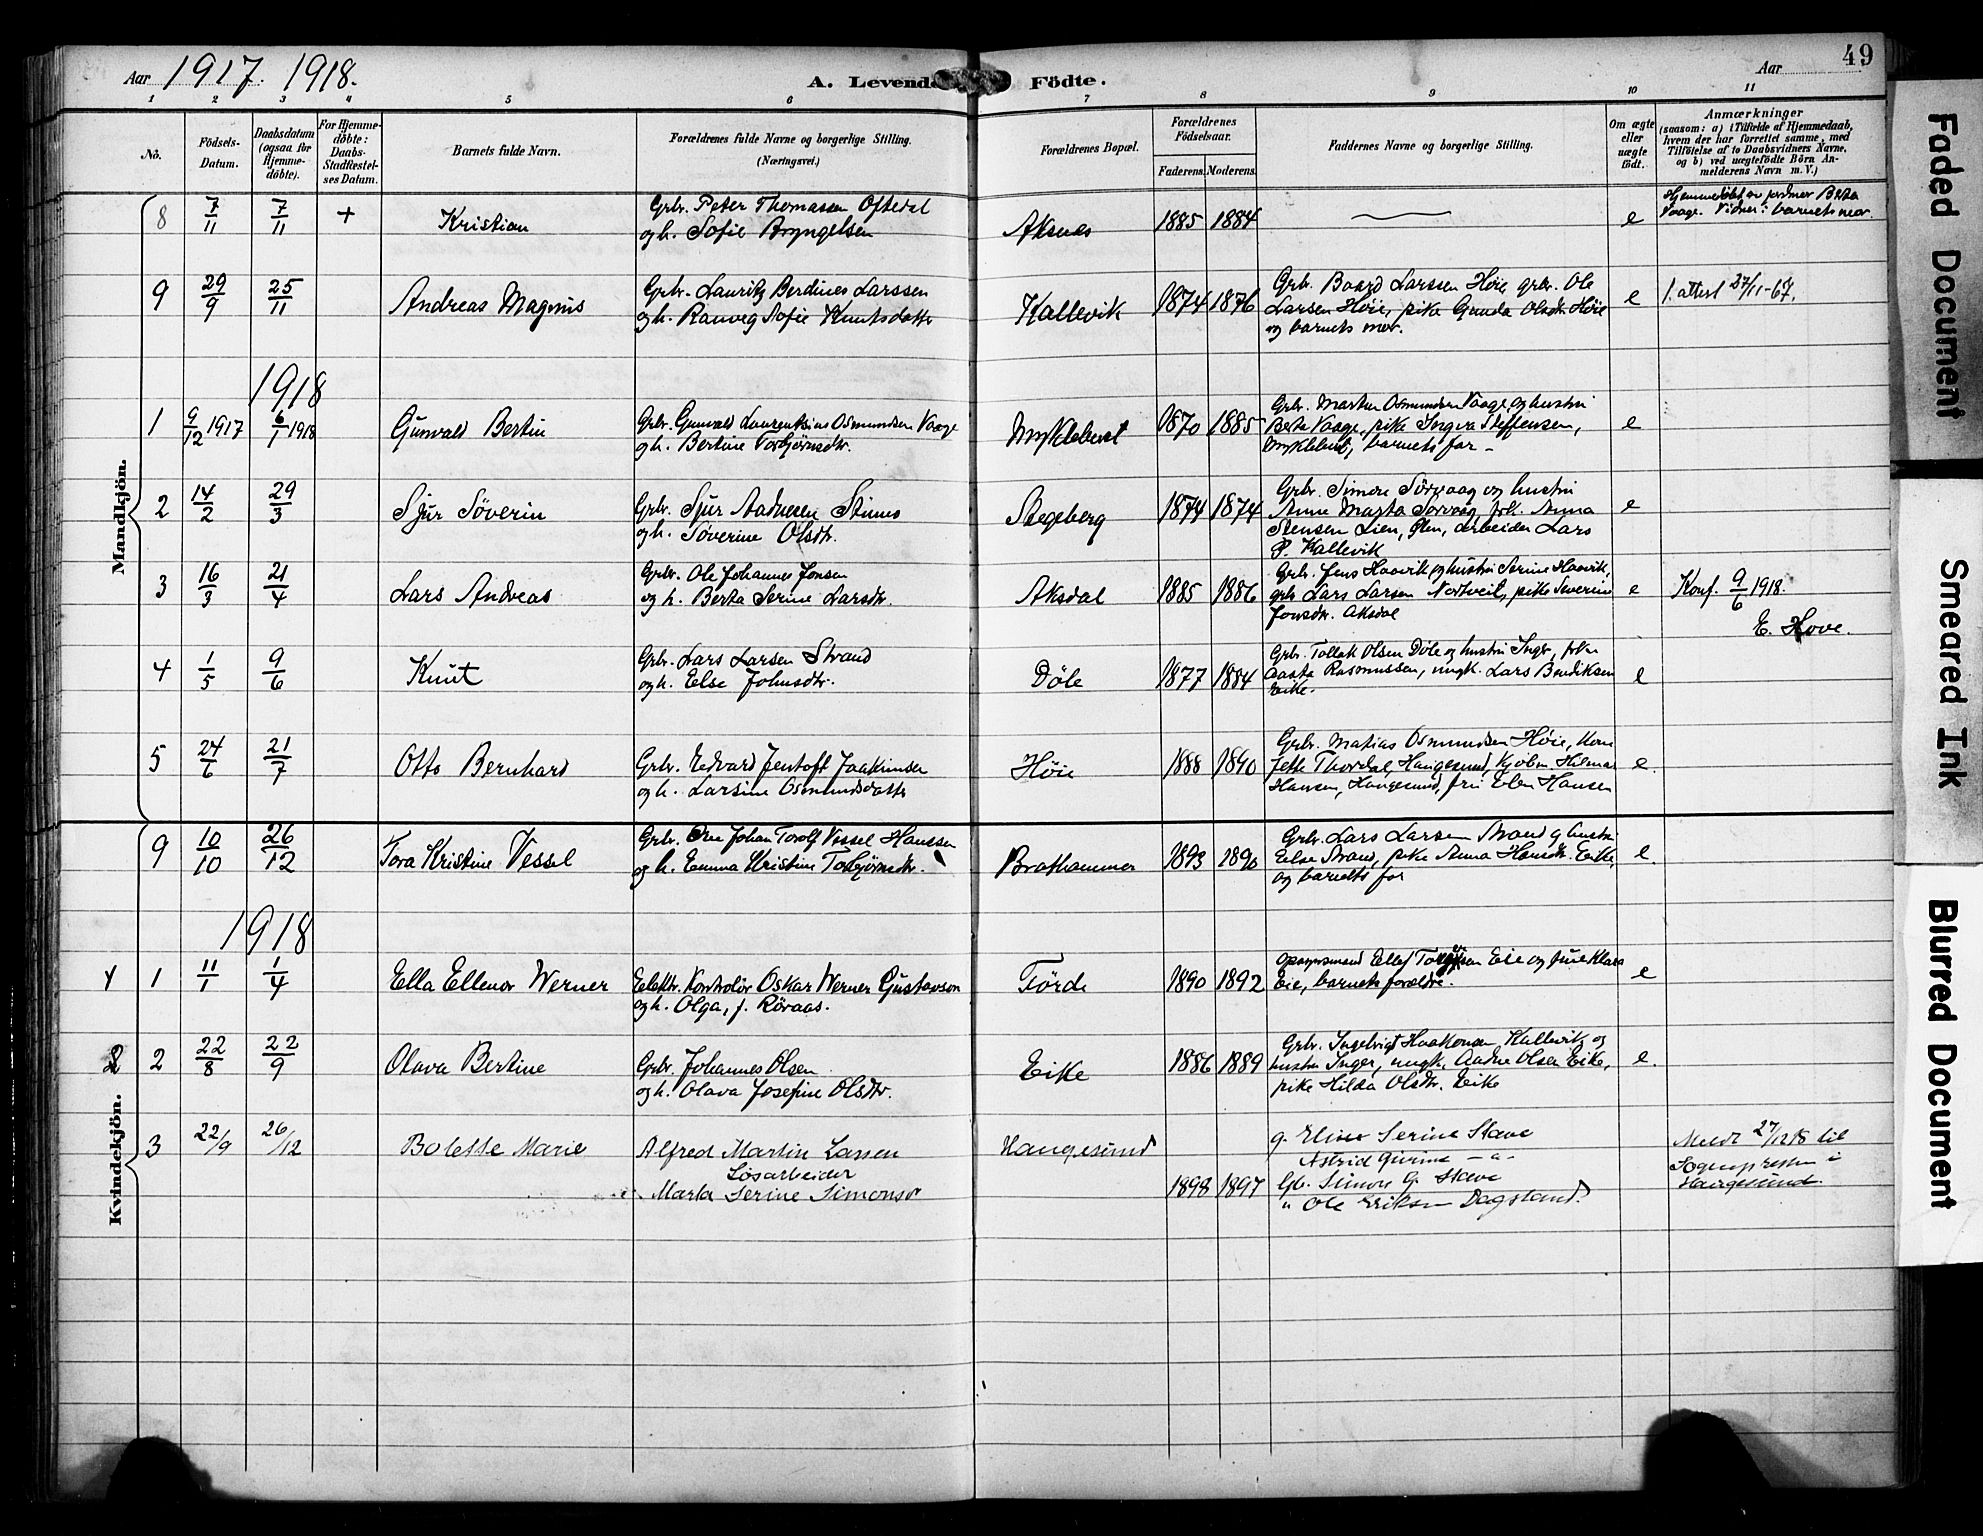 49
Aar 1917. 1918.
A. Levende Födte.
Aar
1 2 3 4 5 6 7 8 9 10 11
No.
Födsels-Datum.
Daabsdatum (ogsaa for Hjemme-döbte).
For Hjemme-döbte: Daabs-Stadfæstel-ses Datum.
Barnets fulde Navn.
Forældrenes fulde Navne og borgerlige Stilling.
(Næringsvei.)
Forældrenes Bopæl.
Forældrenes Födselsaar.
Faderens. Moderens.
Faddernes Navne og borgerlige Stilling.
Om ægte eller uægte födt.
Anmærkninger
(saasom: a) i Tilfælde af Hjemmedaab,
hvem der har forrettet samme, med
Tilföielse af to Daabsvidners Navne,
og b) ved uægtefödte Börn An-
melderens Navn m. V.)
Mandkjön.
8 7/11 7/11 + Kristian
Grbr. Peter Thomassen Oftedal
og h. Sofie Bryngelsen
Aksnes 1885 1884 — e
Hjemmedøbt av jordmor Berta
Vaage. Vidner: barnets mor.
9 29/9 25/11 Andreas Magnus
Grbr. Lauritz Berdines Larssen
og h. Ranveg Sofie Knutsdatter
Kallevik 1874 1876
Grbr. Baard Larssen Høie, grbr. Ole
Larsen Høie, pike Gunda Olsdtr. Høie
og barnets mor.
e
1. attest 27/11-67.
1918
1 9/12 1917 6/1 1918 Gunvald Bertin
Grbr. Gunvald Laurentsius Osmundsen Vaage
og h. Bertine Torbjørnsdtr.
Myklebust 1870 1885
Grbr. Martin Osmundsen Vaage, og hustru
Berta Vaage, pike Ingva Steffensen,
Myklebust, barnets far -
e
2 14/2 29/3 Sjur Söverin
Grbr. Sjur Aadnesen Stinnes
og h. Söverine Olsdtr.
Stegeberg 1874 1874
Grbr. Simon Sørvaag og hustru
Anne Marta Sørvaag, frk. Anna
Stensen Lien, Ølen, arbeider Lars
P. Kallevik
e
3 16/3 21/4 Lars Andreas
Grbr. Ole Johannes Jonsen
og h. Berta Serine Larsdtr.
Aksdal 1885 1886
Grbr. Jens Haavik, og hustru Serine Haavik,
grb. Lars Larsen Nortveit, pike Severine
Jonsdtr. Aksdal
e
Konf. 9/6 1918.
E. Hove.
4 1/5 9/6 Knut
Grbr. Lars Larsen Strand
og h. Else Johnsdtr.
Döle 1877 1884
Grbr. Tollak Olsen Döle og hustru Inger, frk.
Aasta Rasmussen, ungk. Lars Bendiksen
Eike.
e
5 24/6 21/7 Otto Bernhard
Grbr. Edvard Jentoft Joakimsen
og h. Larsine Osmundsdatter
Höie 1888 1890
Grbr. Matias Osmundsen Höie, kone
Jette Thordal, Haugesund, Kjöbm. Hilmar
Hansen, Haugesund, fru Elen Hansen
e.
Kvindekjön.
9 10/10 26/12 Tora Kristine Vessel
Grbr. Johan Torolf Vessel Hanssen
og h. Emma Kristine Torbjörnsdtr.
Brathammer 1893 1890
Grbr. Lars Larsen Strand og hustru
Else Strand, pike Anna Hansdtr. Eike,
og barnets far
e.
1918
1 1 11/1 1/4 Ella Ellenor Werner
Elektr. Kontrolör Oskar Werner Gustavson
og h. Olga, f. Röraas.
Förde 1890 1892
Opsynsmand Ellef Eie og frue Klara
Eie, barnets forældre.
e
2 2 22/8 22/9 Olava Bertine
Grbr. Johannes Olsen
og h. Olava Josefine Olsdtr.
Eike 1886 1889
Grbr. Ingebrigt Haakonsen Kallevik og
hustru Inger, ungk. Aadne Olsen Eike,
pike Hilda Olsdtr. Eike
e.
3 22/9 26/12 Bolette Marie
Alfred Martin Larsen
Løsarbeider
Marta Serine Simonsdr
Haugesund 1898 1897
g. Elise Serine Stave
Astrid Gurine -"-
Gb. Simon G. Stave
" Ole Eriksen Dagsland.
Meldt 27/12 18 til
Sognepresten i
Haugesund.
Faded Document
Smeared Ink
Blurred Document